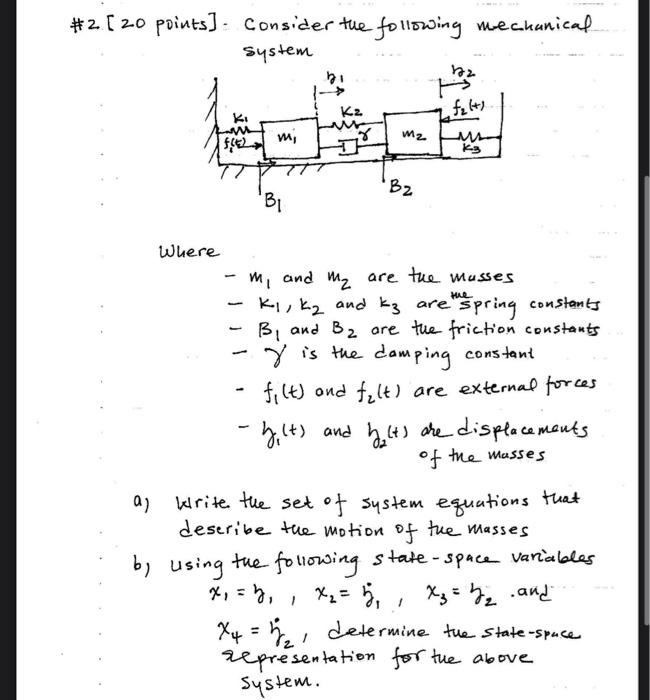 #2 [20 points]. Consider the following mechanical
system
z1
z2
K1
K2
f2(t)
f1(t)
m1
γ
m2
K3
B1
B2
Where
- m1 and m2 are the masses
- K1, K2 and K3 are the spring constants
- B1 and B2 are the friction constants
- γ is the damping constant
- f1(t) and f2(t) are external forces
- z1(t) and z2(t) are displacements
of the masses
a) Write the set of system equations that
describe the motion of the masses
b) using the following state-space variables
x1 = z1, x2 = ż1, x3 = z2 .and
x4 = ż2, determine the state-space
representation for the above
system.